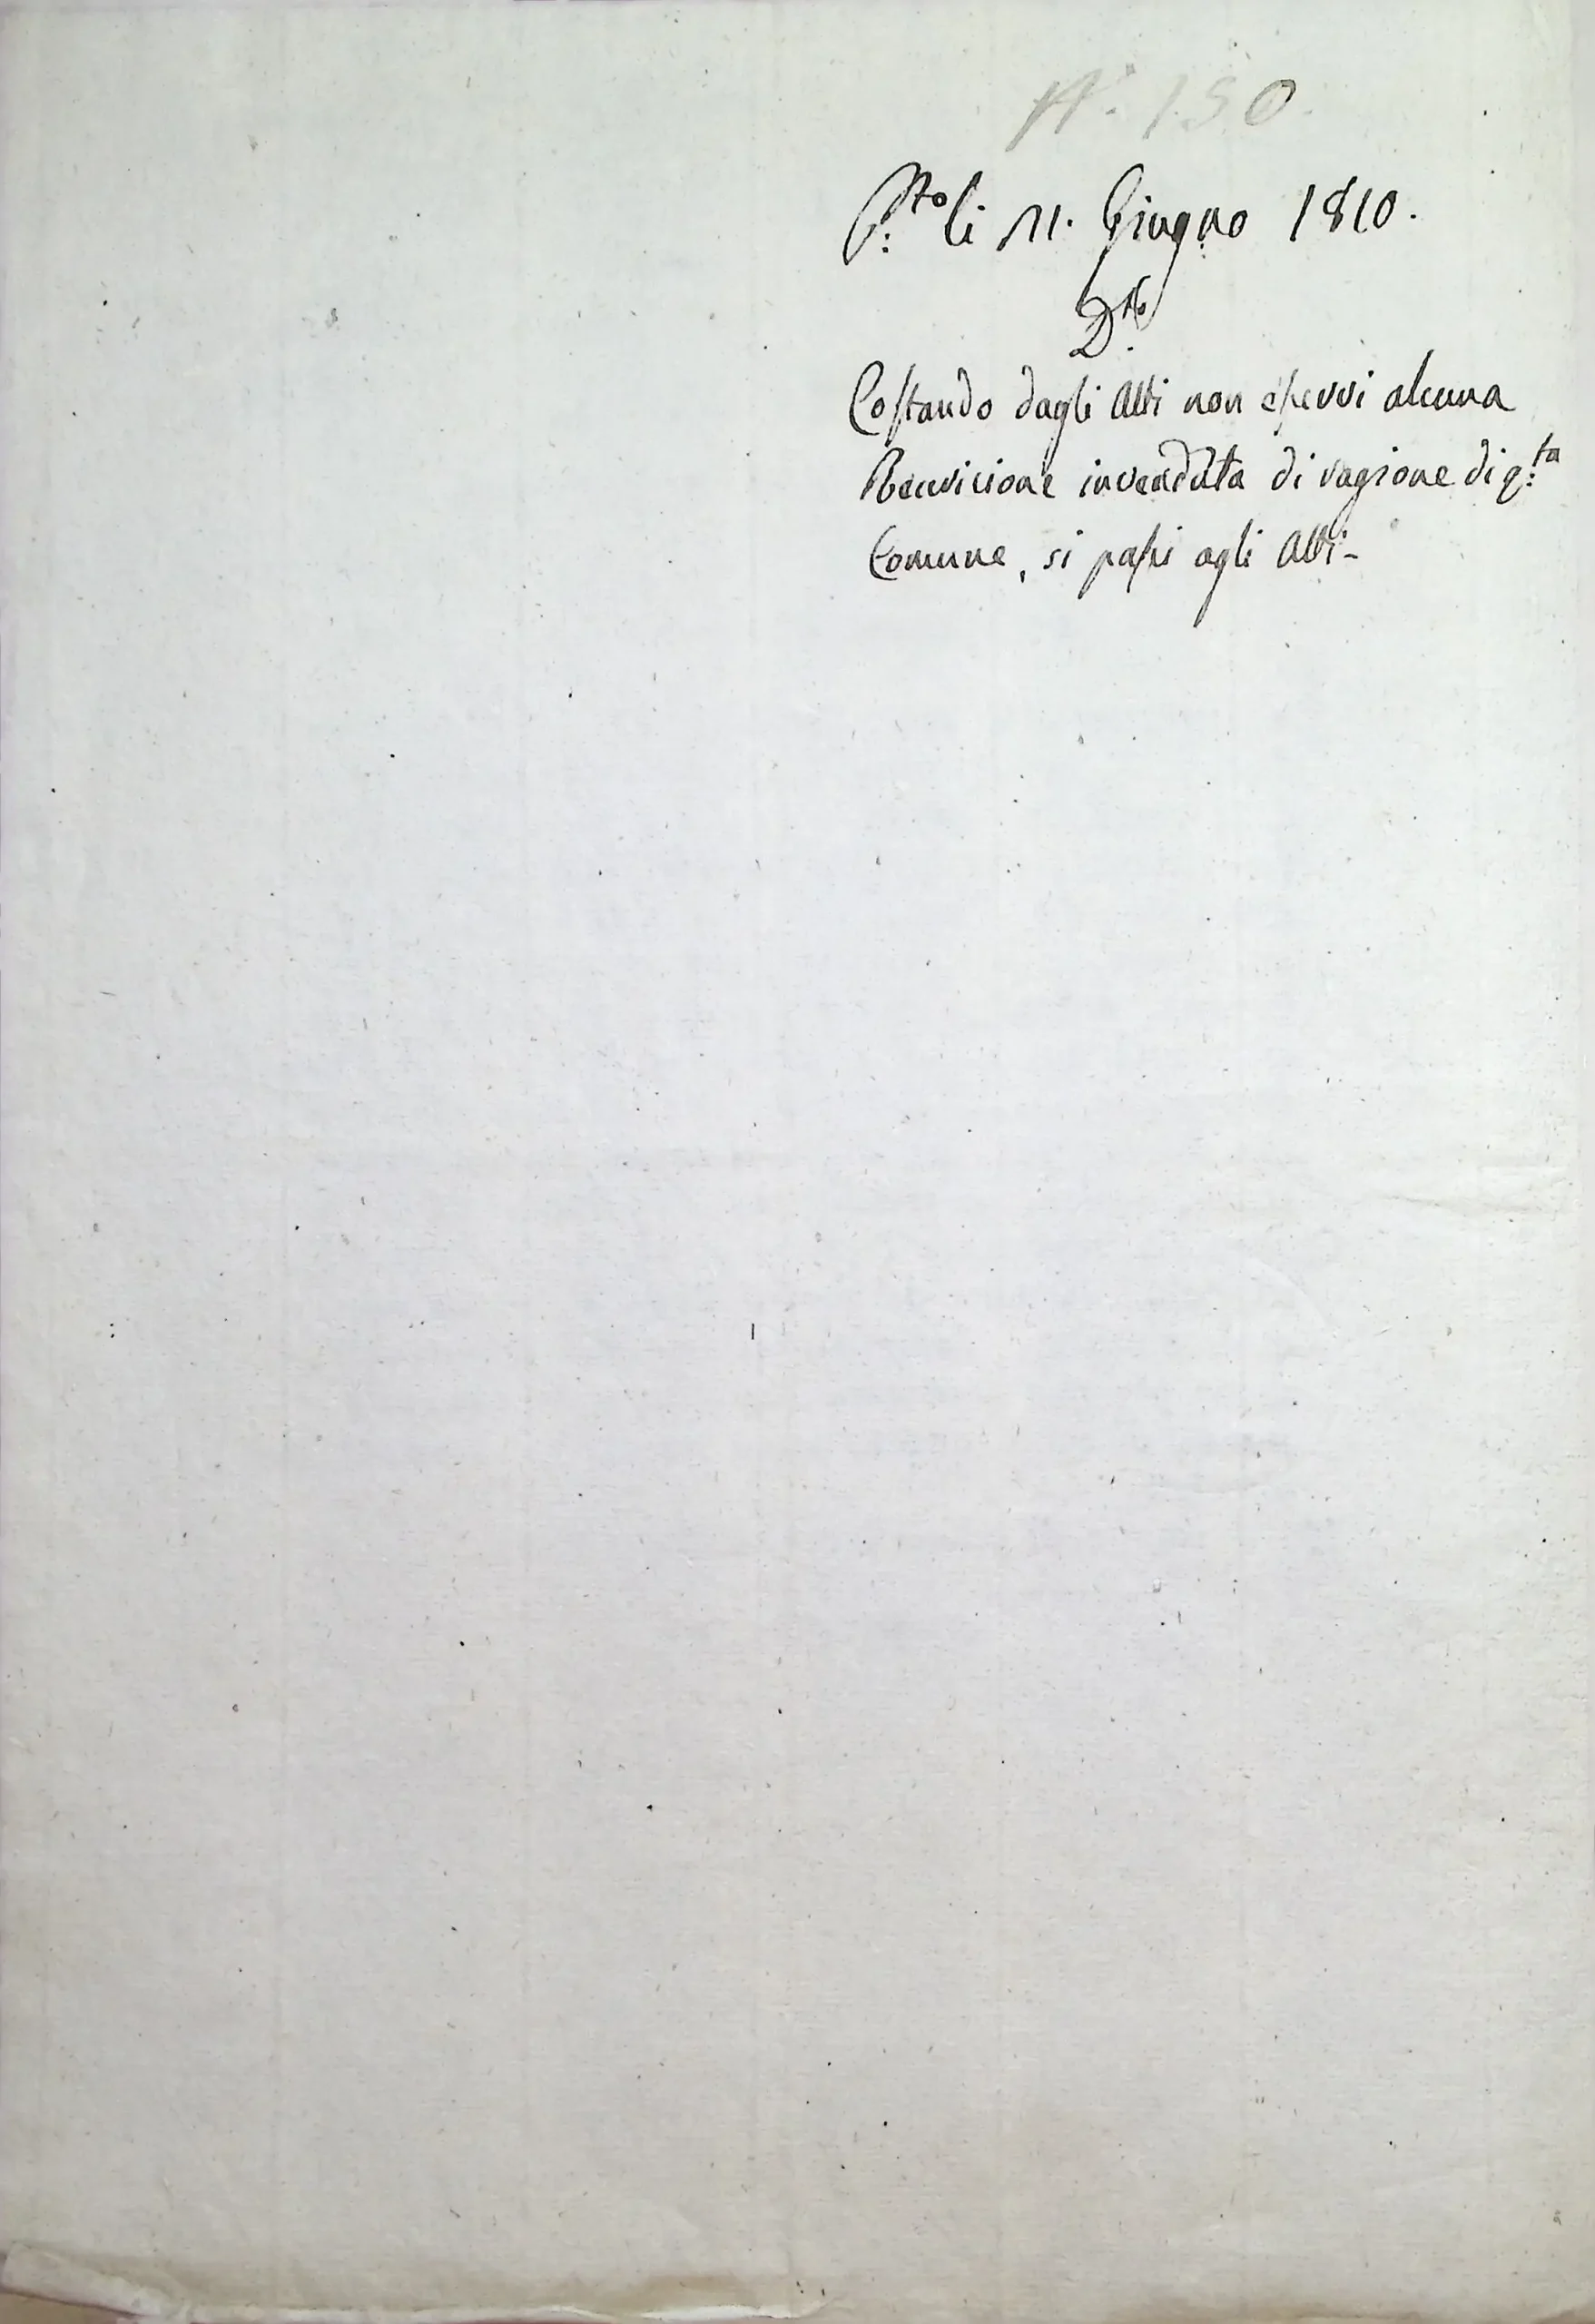 N.° 150.
P.to li 11. Giugno 1810.
D.to
Costando dagli Atti non esservi alcuna
invenduta di ragione di q.ta
Comune, si passi agli Atti-